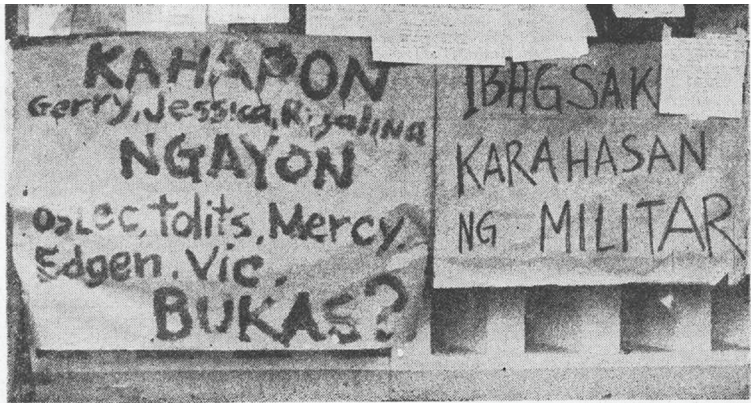 KAHAPON
Gerry, Jessica, Rizalina
NGAYON
Tolits, Mercy,
Edgen, Vic,
BUKAS?
IBAGSAK
KARAHASAN
NG MILITAR